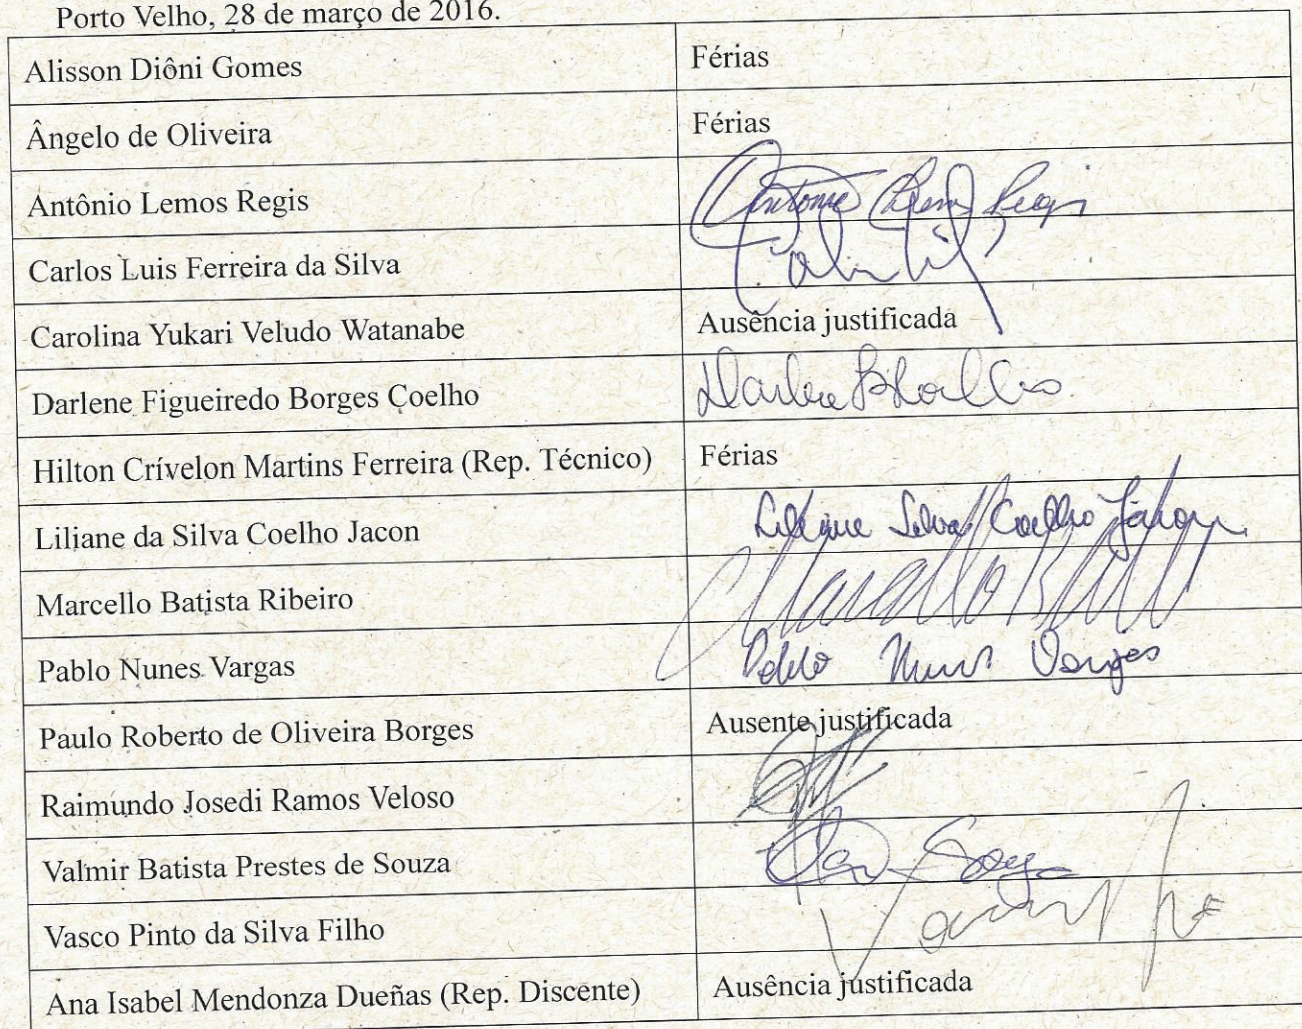 Porto Velho, 28 de março de 2016.
Alisson Diôni Gomes Férias
Ângelo de Oliveira Férias
Antônio Lemos Regis Antonio Lemos Regis
Carlos Luis Ferreira da Silva
Carolina Yukari Veludo Watanabe Ausência justificada
Darlene Figueiredo Borges Coelho Darlene FBCoelho
Hilton Crívelon Martins Ferreira (Rep. Técnico) Férias
Liliane da Silva Coelho Jacon Liliane Silva Coelho Jacon
Marcello Batista Ribeiro
Pablo Nunes Vargas Pablo Nunes Vargas
Paulo Roberto de Oliveira Borges Ausente justificada
Raimundo Josedi Ramos Veloso
Valmir Batista Prestes de Souza
Vasco Pinto da Silva Filho
Ana Isabel Mendonza Dueñas (Rep. Discente) Ausência justificada